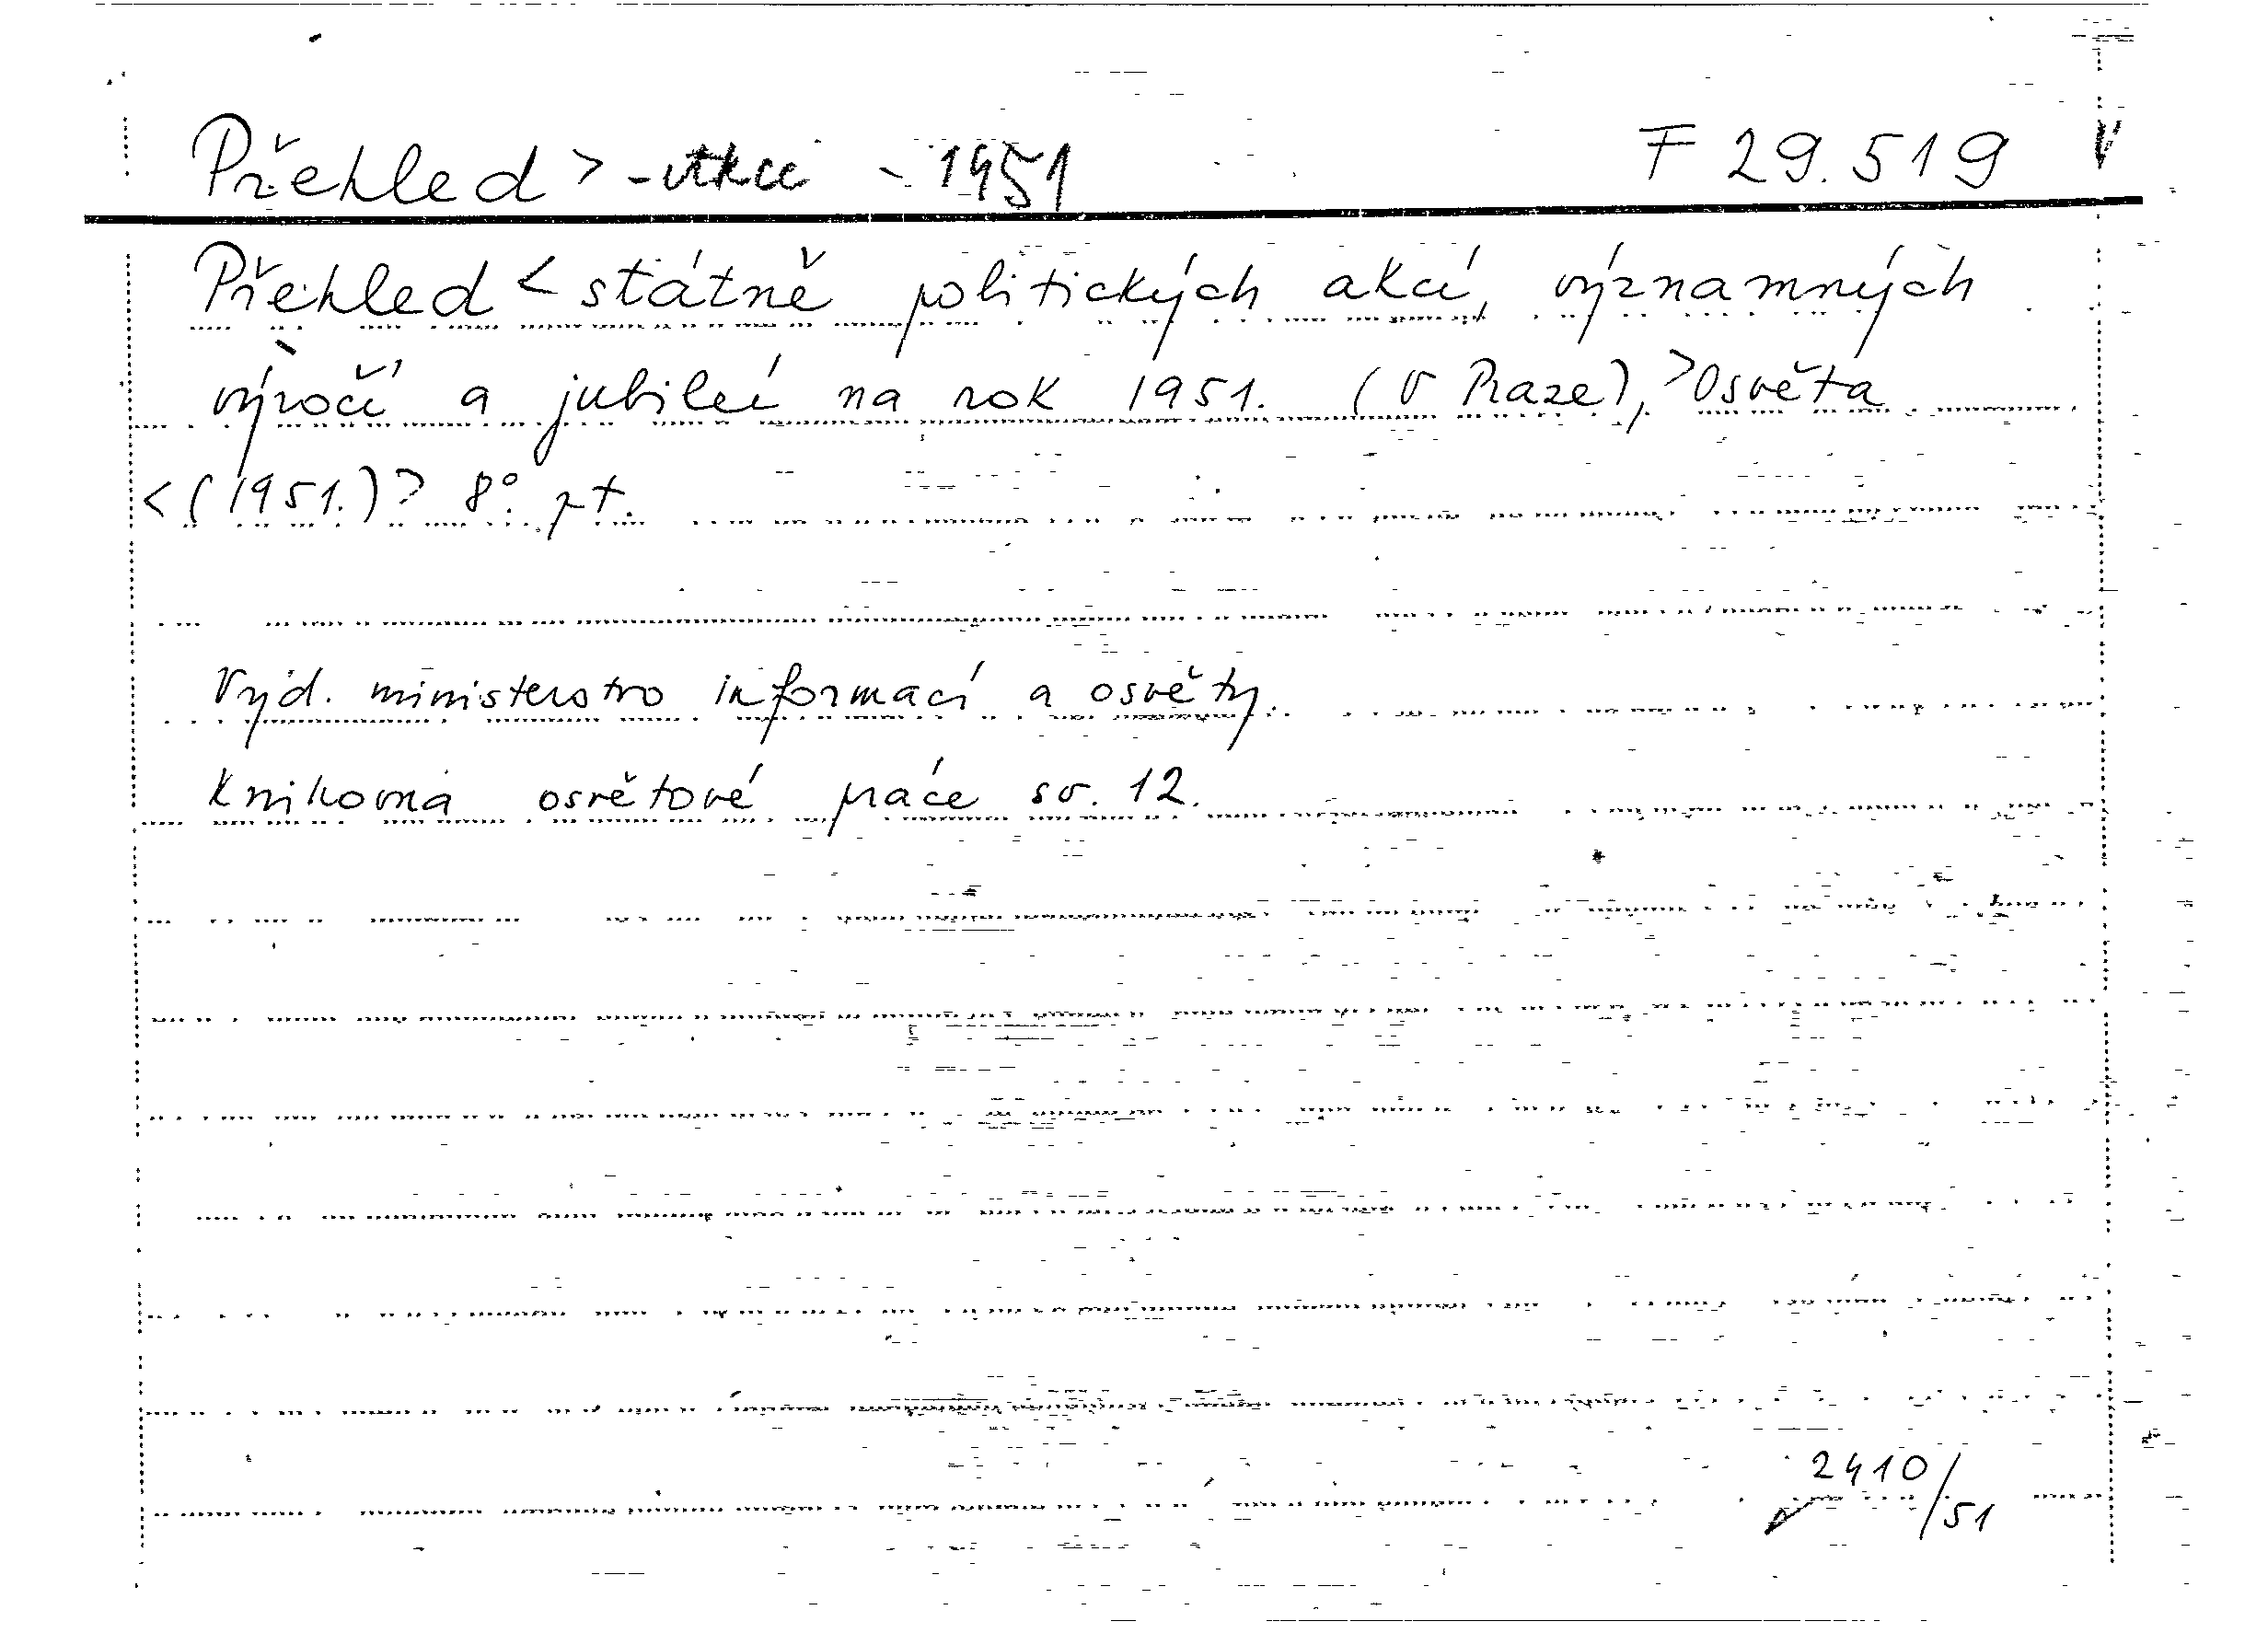 Přehled > - akcí - 1951 F 29.519
Přehled < státně politických akcí, významných
výročí a jubileí na rok 1951. (V Praze), > Osvěta
< (1951.) > 8° pt.
Vyd. ministerstvo informací a osvěty.
Knihovna osvětové práce sv. 12.
2410/51